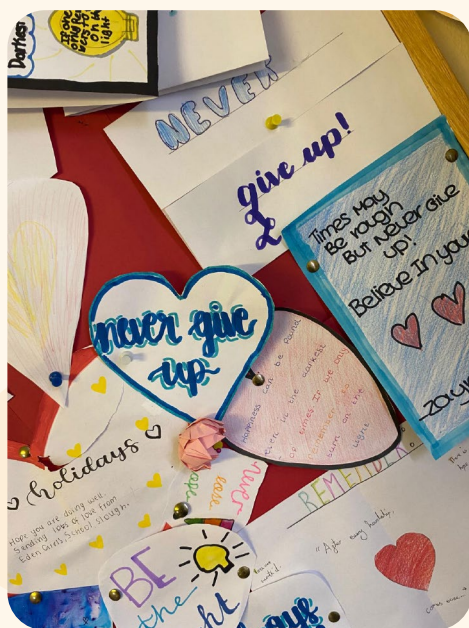 Darkest
If one
on the
light
NEVER
give up!
Times May
Be rough
But Never Give
up!
Believe In your
never give
up
Happiness can be found
even in the darkest
of times If we only
remember to
turn on the
light
holidays
Hope you are doing well.
Sending lots of love from
Eden Girls, School Slough.
never
lose
hope
REMEMBER
"After every hardship,
comes ease..."
BE
the